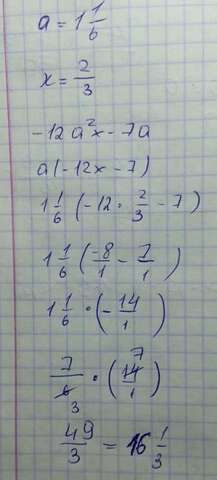 a = 1 1/6
x = 2/3
-12a²x - 7a
a(-12x - 7)
1 1/6 (-12 · 2/3 - 7)
1 1/6 (-8/1 - 7/1)
1 1/6 · (-14/1)
7/6 3 · (14/1) 7
49/3 = 16 1/3